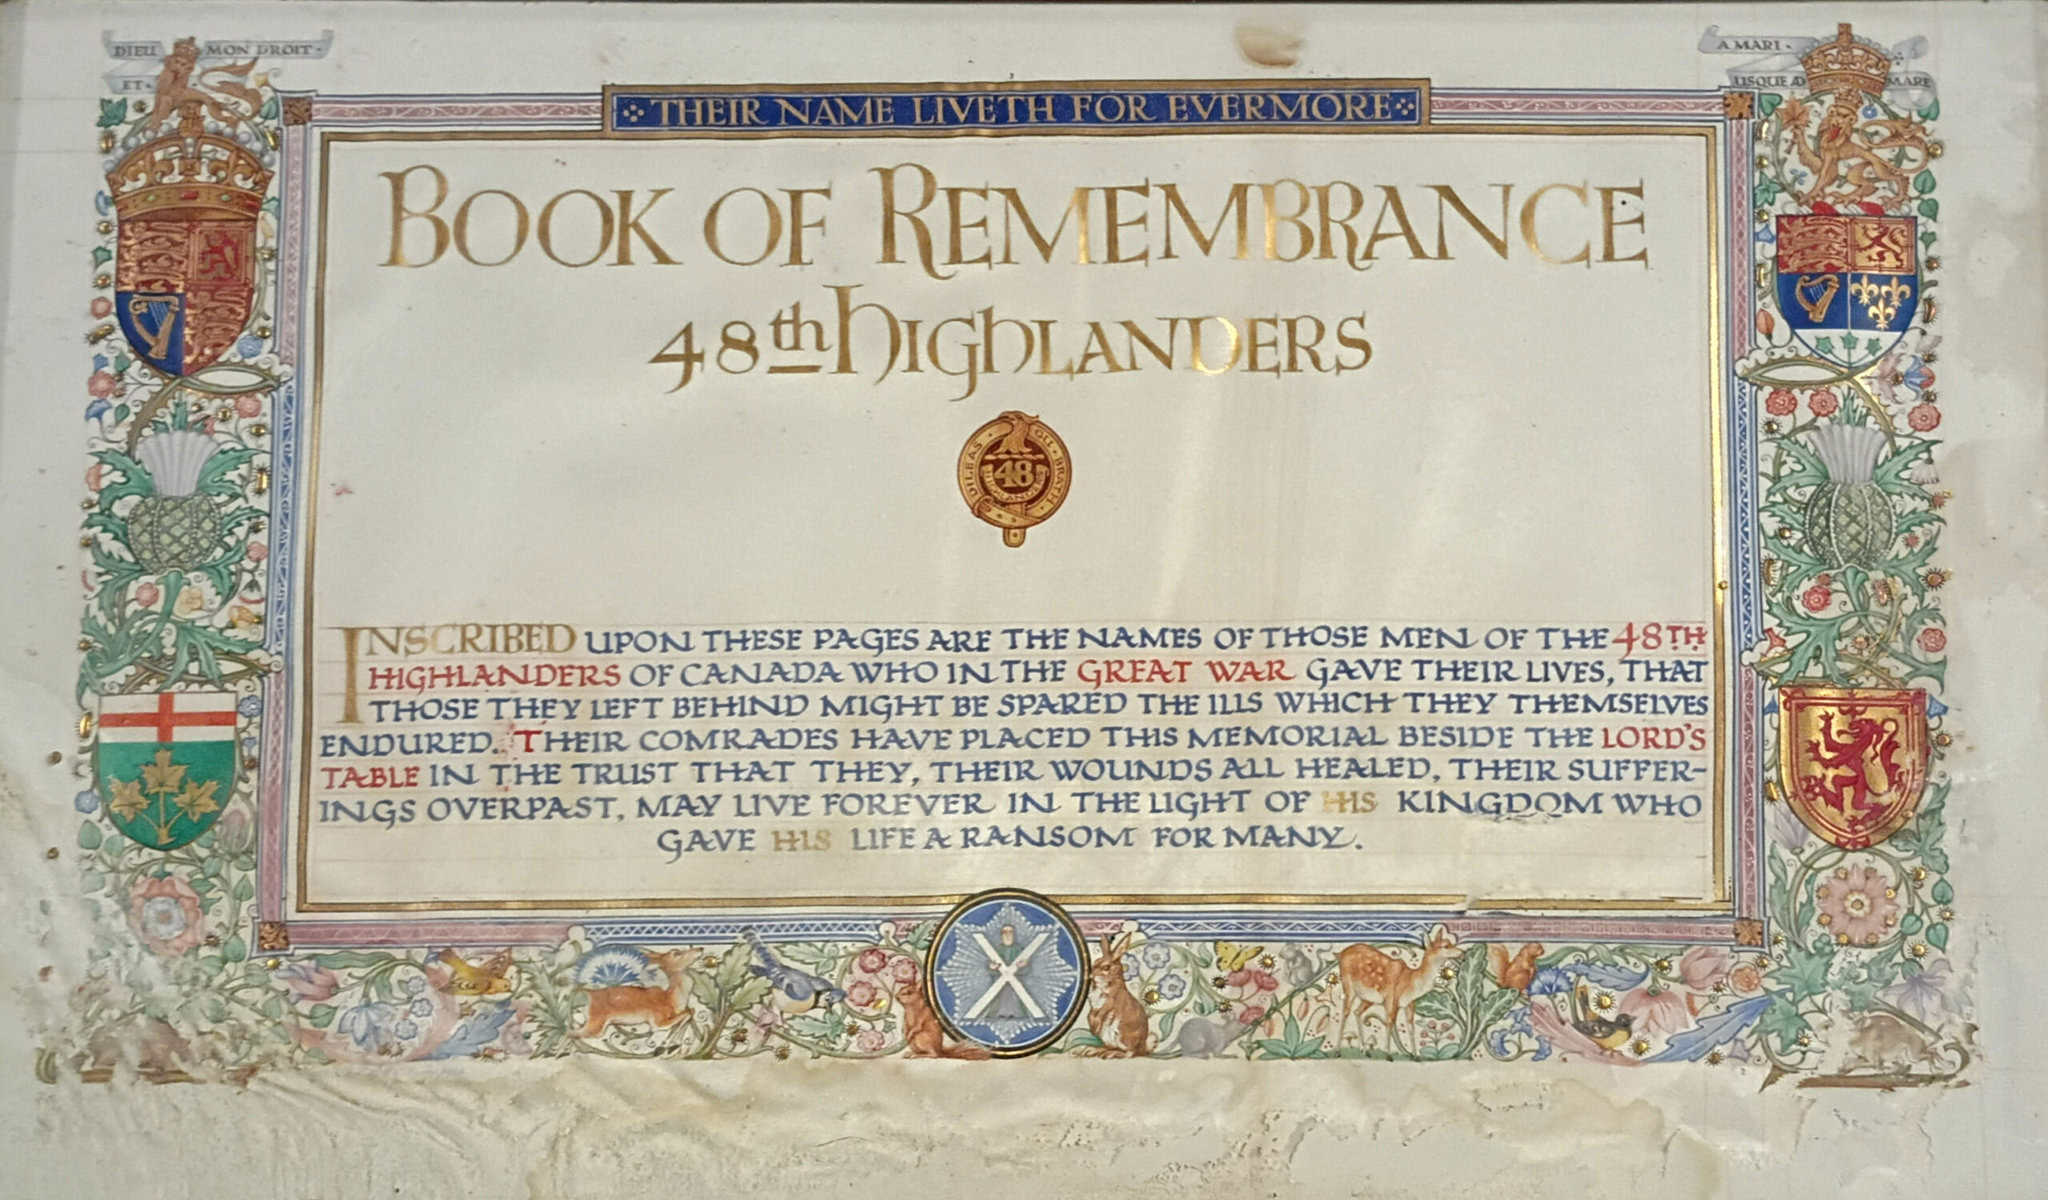 DIEU MON DROIT
ET
A MARI
USQUE AD MARE
THEIR NAME LIVETH FOR EVERMORE
BOOK OF REMEMBRANCE
48th HIGHLANDERS
DILEAS GU BRATH
48
HIGHLANDERS
INSCRIBED UPON THESE PAGES ARE THE NAMES OF THOSE MEN OF THE 48TH
HIGHLANDERS OF CANADA WHO IN THE GREAT WAR GAVE THEIR LIVES, THAT
THOSE THEY LEFT BEHIND MIGHT BE SPARED THE ILLS WHICH THEY THEMSELVES
ENDURED. THEIR COMRADES HAVE PLACED THIS MEMORIAL BESIDE THE LORD'S
TABLE IN THE TRUST THAT THEY, THEIR WOUNDS ALL HEALED, THEIR SUFFER-
INGS OVERPAST, MAY LIVE FOREVER IN THE LIGHT OF HIS KINGDOM WHO
GAVE HIS LIFE A RANSOM FOR MANY.